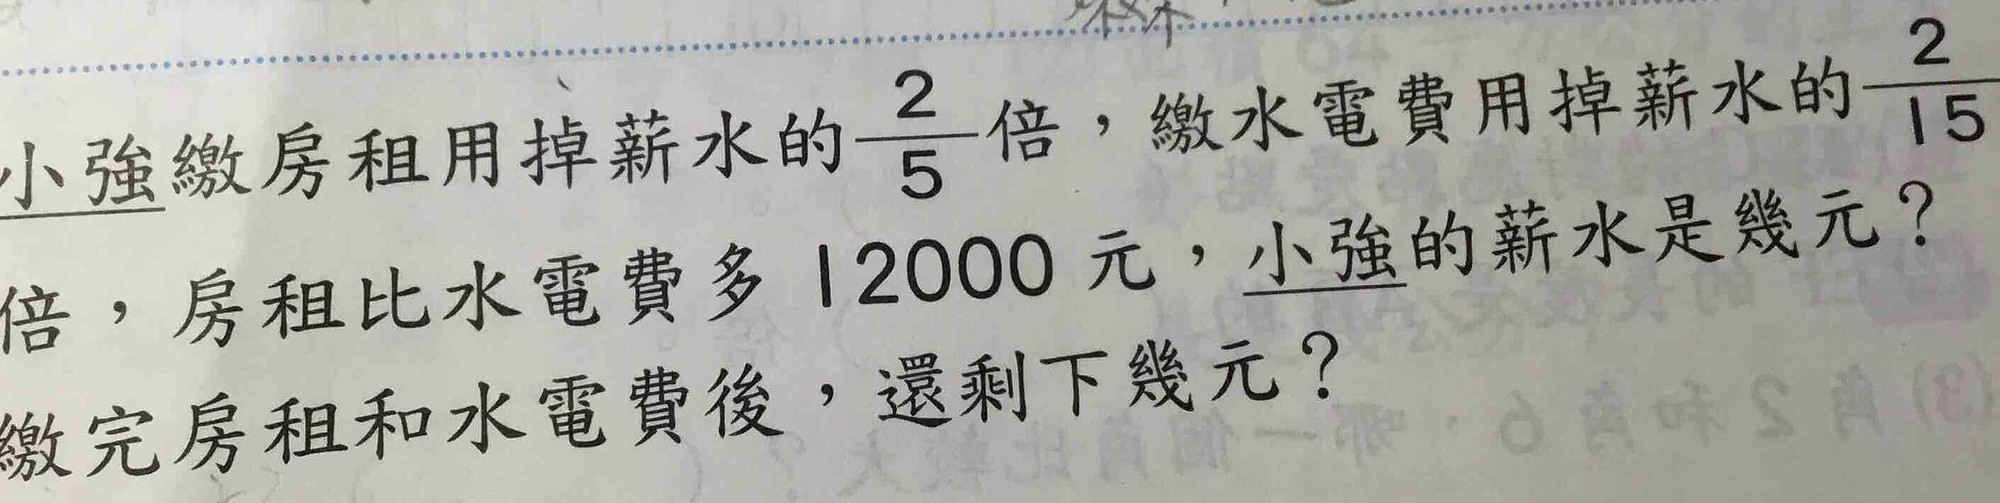 小強繳房租用掉薪水的2/5倍，繳水電費用掉薪水的2/15
倍，房租比水電費多 12000 元，小強的薪水是幾元？
繳完房租和水電費後，還剩下幾元？